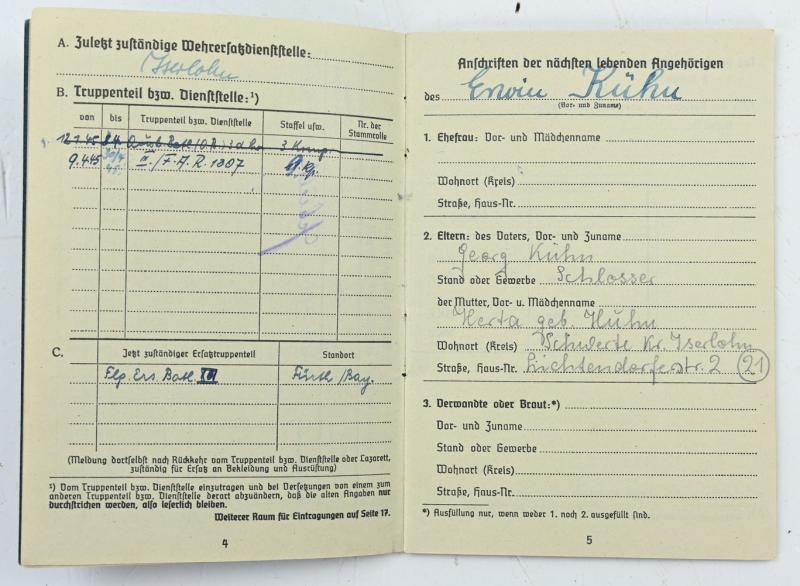 A. Zuletzt zuständige Wehrersatzdienststelle:
Iserlohn
B. Truppenteil bzw. Dienststelle:¹)
von bis Truppenteil bzw. Dienststelle Staffel usw. Nr. der Stammrolle
12.1.45 3 Komp.
9.4.45 III./F.A.R. 1807 9 Kp.
C. Jetzt zuständiger Ersatztruppenteil Standort
Flg. Ers. Batl. Fürth/Bay.
(Meldung dortselbst nach Rückkehr vom Truppenteil bzw. Dienststelle oder Lazarett,
zuständig für Ersatz an Bekleidung und Ausrüstung)
¹) Vom Truppenteil bzw. Dienststelle einzutragen und bei Versetzungen von einem zum
anderen Truppenteil bzw. Dienststelle derart abzuändern, daß die alten Angaben nur
durchstrichen werden, also leserlich bleiben.
Weiterer Raum für Eintragungen auf Seite 17.
4
Anschriften der nächsten lebenden Angehörigen
des Erwin Kühn
(Vor- und Zuname)
1. Ehefrau: Vor- und Mädchenname
Wohnort (Kreis)
Straße, Haus-Nr.
2. Eltern: des Vaters, Vor- und Zuname
Georg Kühn
Stand oder Gewerbe Schlosser
der Mutter, Vor- u. Mädchenname
Herta geb. Huhn
Wohnort (Kreis) Schwerte Kr. Iserlohn
Straße, Haus-Nr. Lichtendorferstr. 2 (21)
3. Verwandte oder Braut:*)
Vor- und Zuname
Stand oder Gewerbe
Wohnort (Kreis)
Straße, Haus-Nr.
*) Ausfüllung nur, wenn weder 1. noch 2. ausgefüllt sind.
5